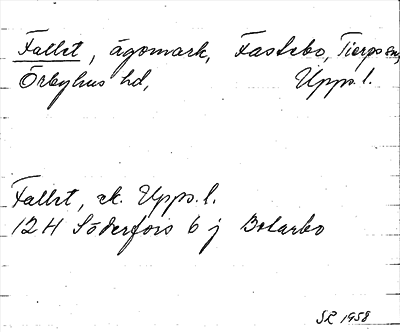 Fallet, ägomark, Fastebo, Tierps sn,
Örbyhus hd, Upps. l.
Fallet, ek. Upps. l.
12H Söderfors 6 j Bolarbo
SL 1958